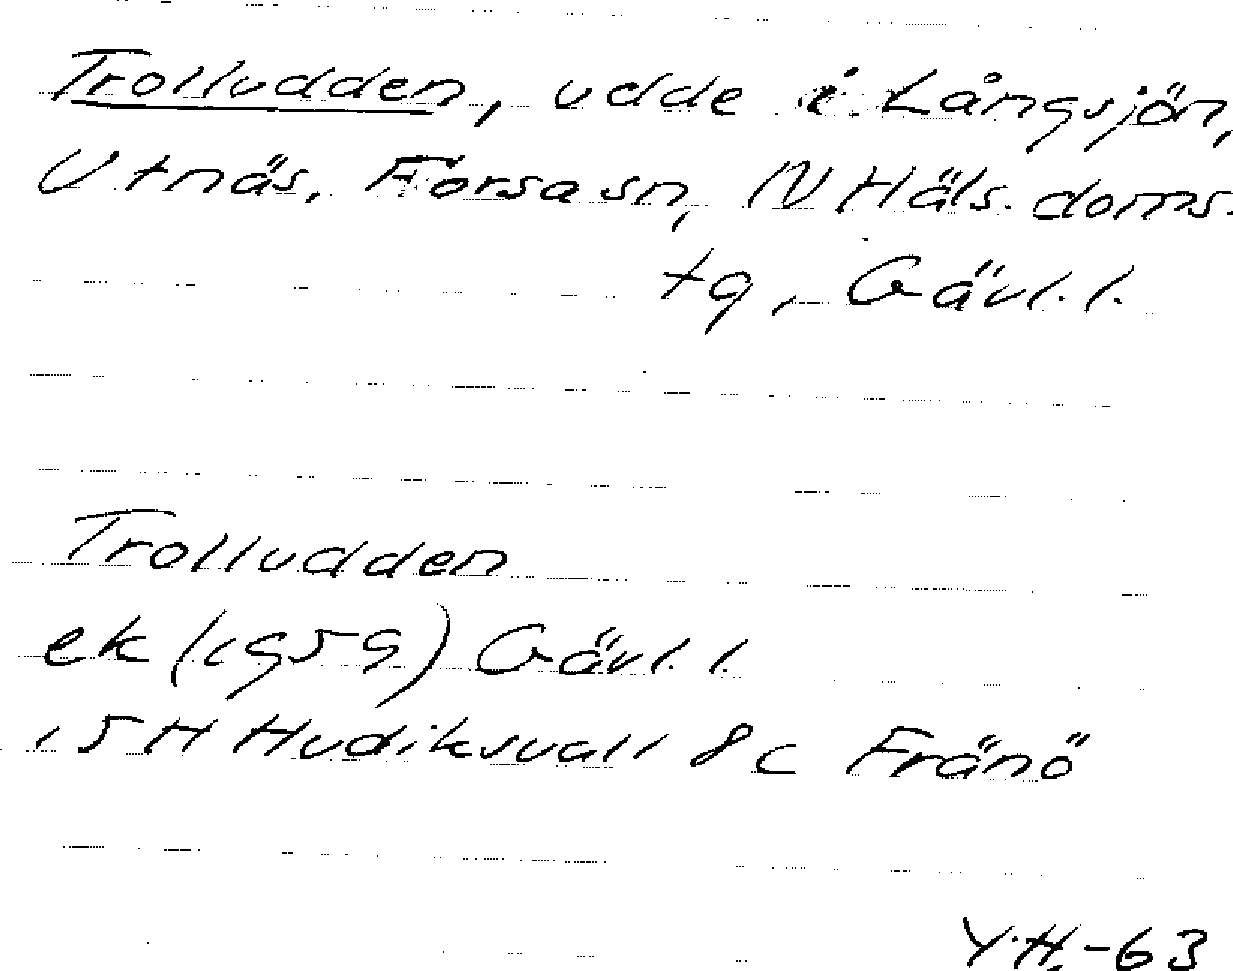 Trolludden, udde i Långsjön,
Utnäs, Forsa sn, N Häls. doms.
tg, Gävl. l.
Trolludden
ek (1959) Gävl. l.
15 H Hudiksvall 8 c Fränö
Y.H.-63